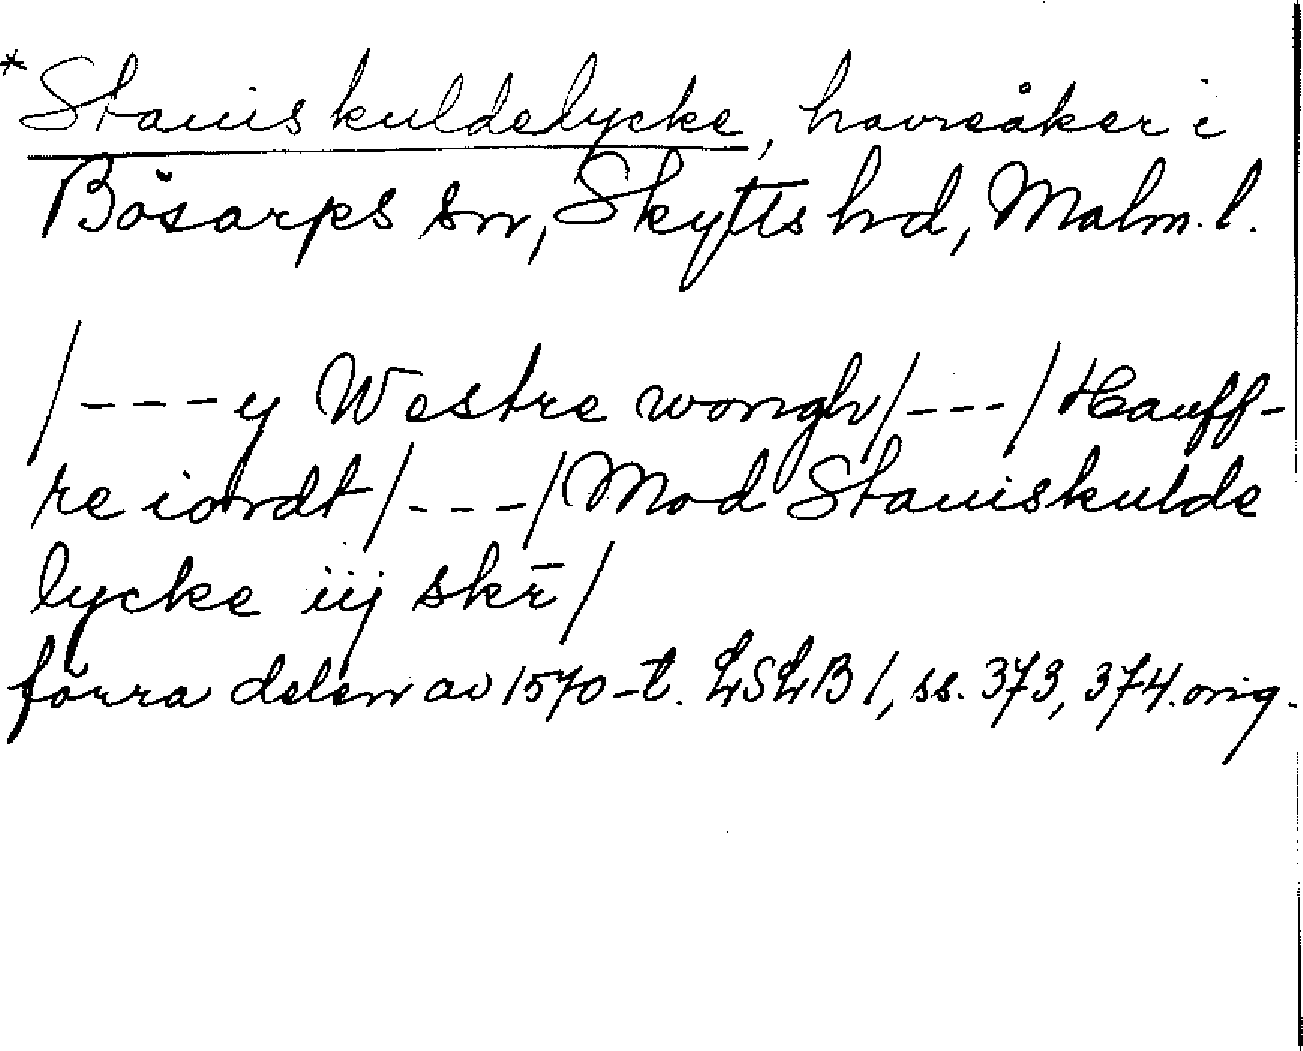 *Stauis kuldelycke, havreåker i
Bösarps sn, Skytts hd, Malm. l.
/---y Westre wongh/---/Hauff-
re iordt/---/Mod Stauiskulde
lycke iij skr̄/
förra delen av 1570-t. LSLB 1, ss. 373, 374. orig.